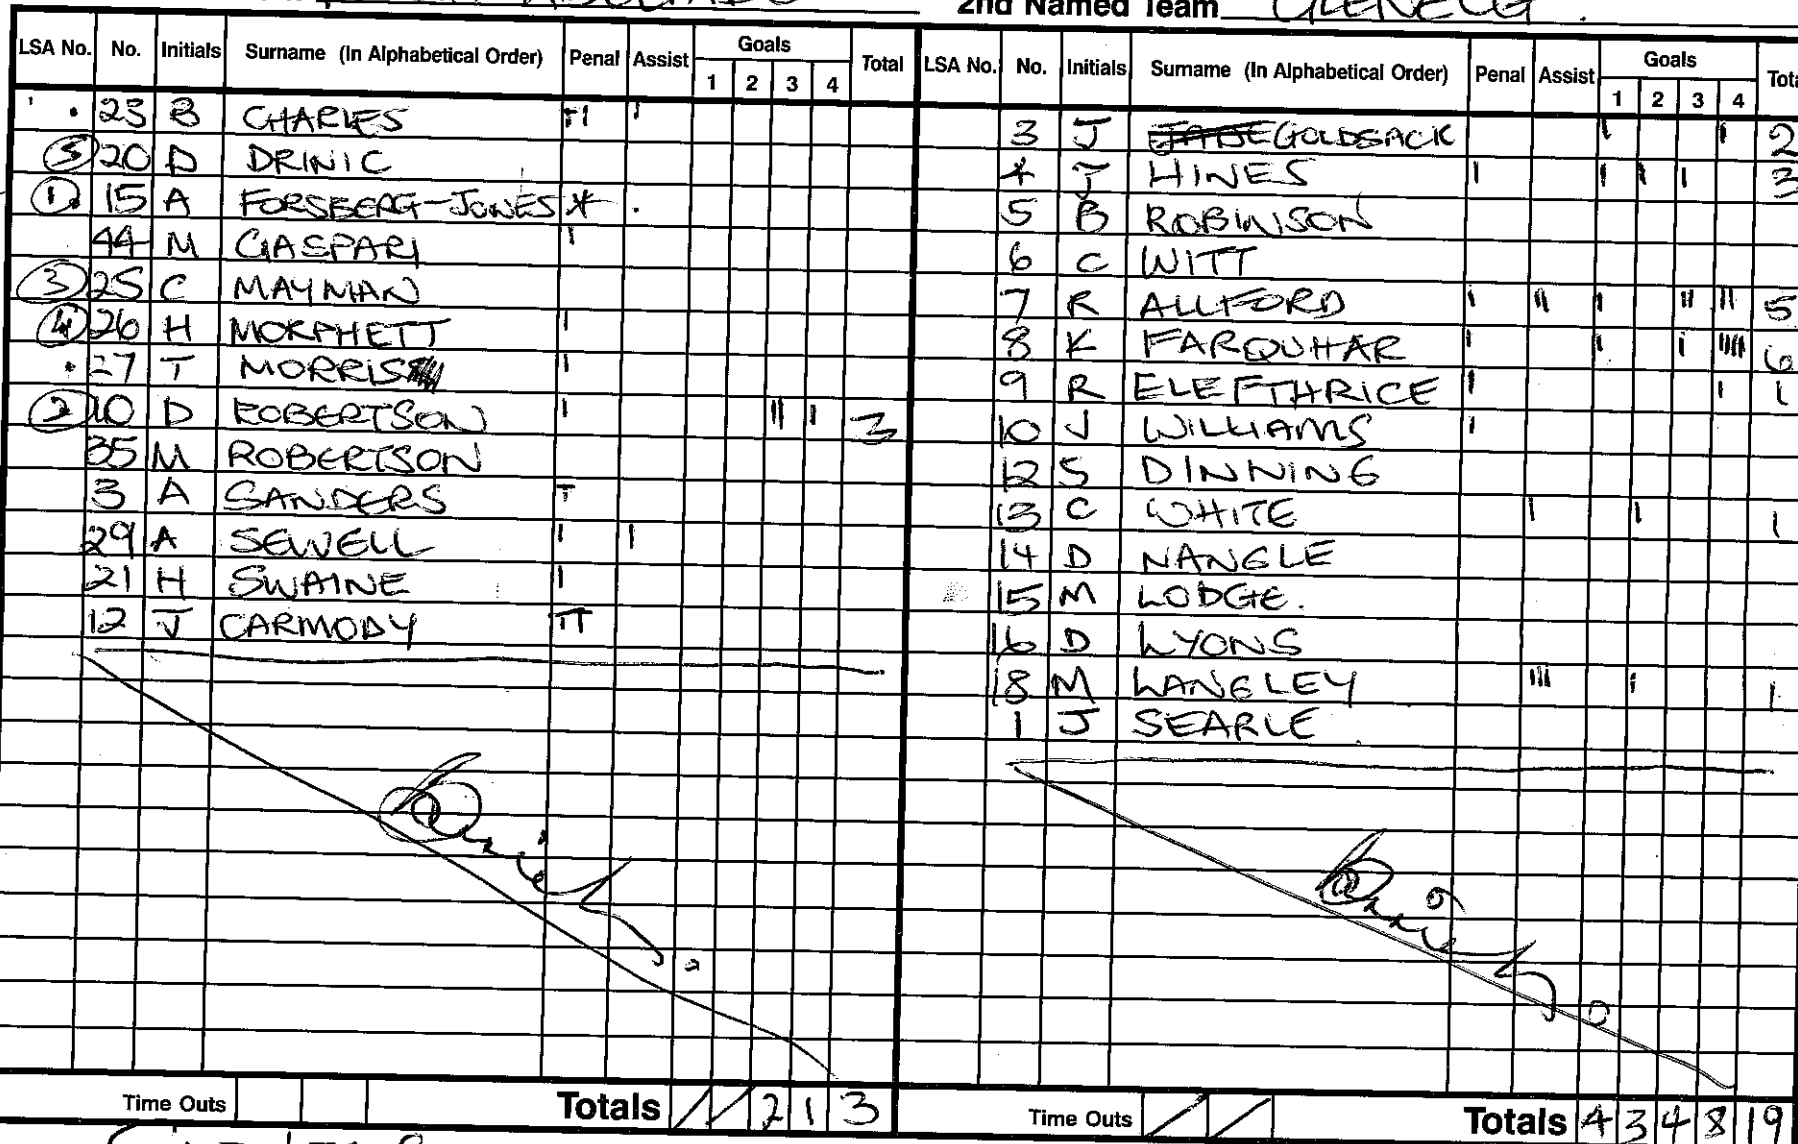 2nd Named Team GLENELG.
LSA No. No. Initials Surname (In Alphabetical Order) Penal Assist Goals 1 2 3 4 Total
23 B CHARLES
5 20 D DRINIC
1 15 A FORSBERG-JONES
44 M GASPARI
3 25 C MAYMAN
4 26 H MORPHETT
27 T MORRIS
2 10 D ROBERTSON 3
35 M ROBERTSON
3 A SANDERS
29 A SEWELL
21 H SWAINE
12 J CARMODY
Time Outs Totals 2 1 3
LSA No. No. Initials Surname (In Alphabetical Order) Penal Assist Goals 1 2 3 4 Tota
3 J GOLDSACK 2
4 J HINES 3
5 B ROBINSON
6 C WITT
7 R ALLFORD 5
8 K FARQUHAR 6
9 R ELEFTHRICE 1
10 J WILLIAMS
12 S DINNING
13 C WHITE 1
14 D NANGLE
15 M LODGE.
16 D LYONS
18 M LANGLEY 1
1 J SEARLE
Time Outs Totals 4 3 4 8 19